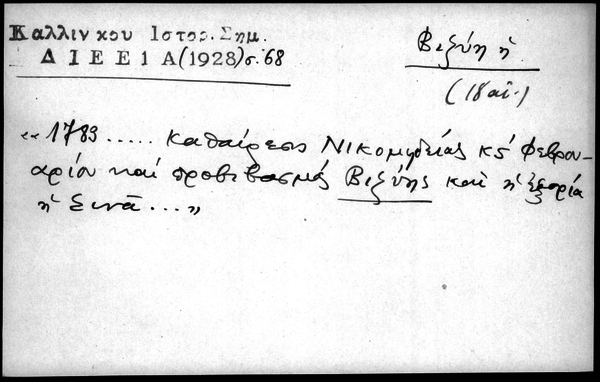 Καλλινκου Ιστορ. Σημ.
ΔΙΕΕ1Α(1928)σ.68
Βιζύη ἡ
(18 αἰ.)
«1783..... καθαίρεσις Νικομηδείας κς΄ Φεβρου-
αρίου καὶ προβιβασμός Βιζύης καὶ ἡ ἐξορία
ἡ Σινᾶ...»